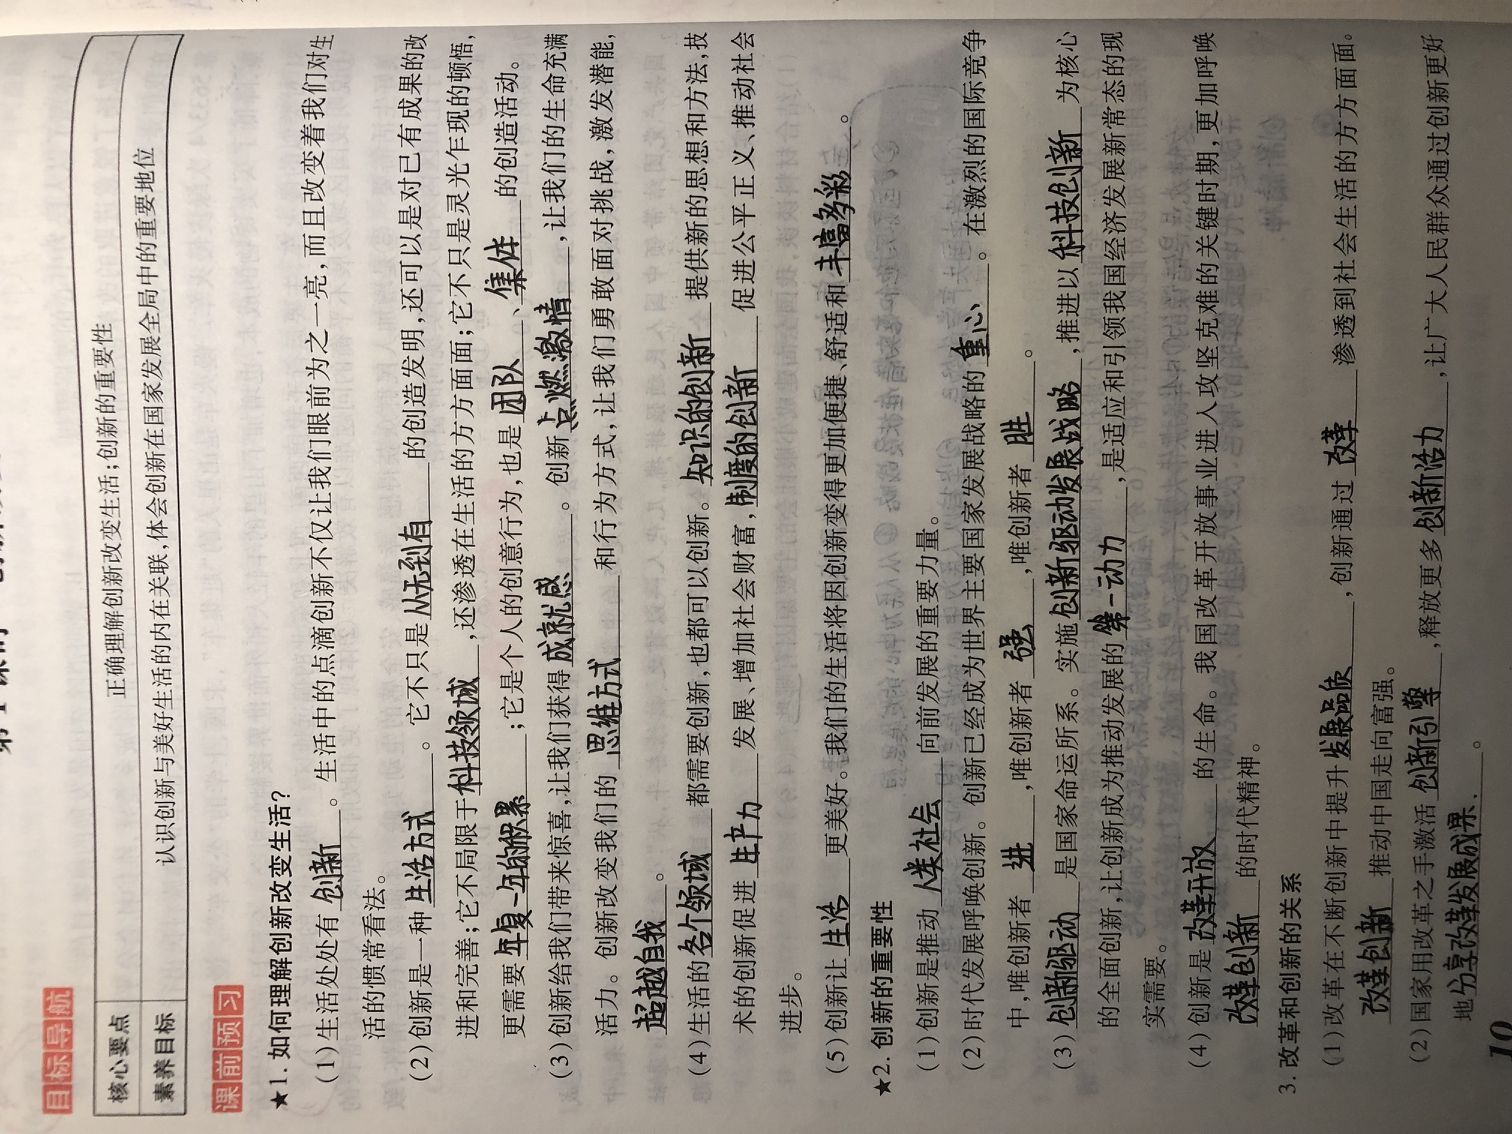 目标导航
核心要点 正确理解创新改变生活;创新的重要性
素养目标 认识创新与美好生活的内在关联,体会创新在国家发展全局中的重要地位
课前预习
★1. 如何理解创新改变生活?
(1)生活处处有 创新 。生活中的点滴创新不仅让我们眼前为之一亮,而且改变着我们对生
活的惯常看法。
(2)创新是一种 生活方式 。它不只是 从无到有 的创造发明,还可以是对已有成果的改
进和完善;它不局限于 科技领域 ,还渗透在生活的方方面面;它不只是灵光乍现的顿悟,
更需要 年复一年的积累 ;它是个人的创意行为,也是 团队 、 集体 的创造活动。
(3)创新给我们带来惊喜,让我们获得 成就感 。创新 点燃激情 ,让我们的生命充满
活力。创新改变我们的 思维方式 和行为方式,让我们勇敢面对挑战,激发潜能,
超越自我 。
(4)生活的 各个领域 都需要创新,也都可以创新。 知识的创新 提供新的思想和方法,技
术的创新促进 生产力 发展、增加社会财富, 制度的创新 促进公平正义、推动社会
进步。
(5)创新让 生活 更美好。我们的生活将因创新变得更加便捷、舒适和 丰富多彩 。
★2. 创新的重要性
(1)创新是推动 人类社会 向前发展的重要力量。
(2)时代发展呼唤创新。创新已经成为世界主要国家发展战略的 重心 。在激烈的国际竞争
中,唯创新者 进 ,唯创新者 强 ,唯创新者 胜 。
(3) 创新驱动 是国家命运所系。实施 创新驱动发展战略 ,推进以 科技创新 为核心
的全面创新,让创新成为推动发展的 第一动力 ,是适应和引领我国经济发展新常态的现
实需要。
(4)创新是 改革开放 的生命。我国改革开放事业进入攻坚克难的关键时期,更加呼唤
改革创新 的时代精神。
3. 改革和创新的关系
(1)改革在不断创新中提升 发展品质 ,创新通过 改革 渗透到社会生活的方方面面。
改革创新 推动中国走向富强。
(2)国家用改革之手激活 创新引擎 ,释放更多 创新活力 ,让广大人民群众通过创新更好
地 分享改革发展成果. 。
10